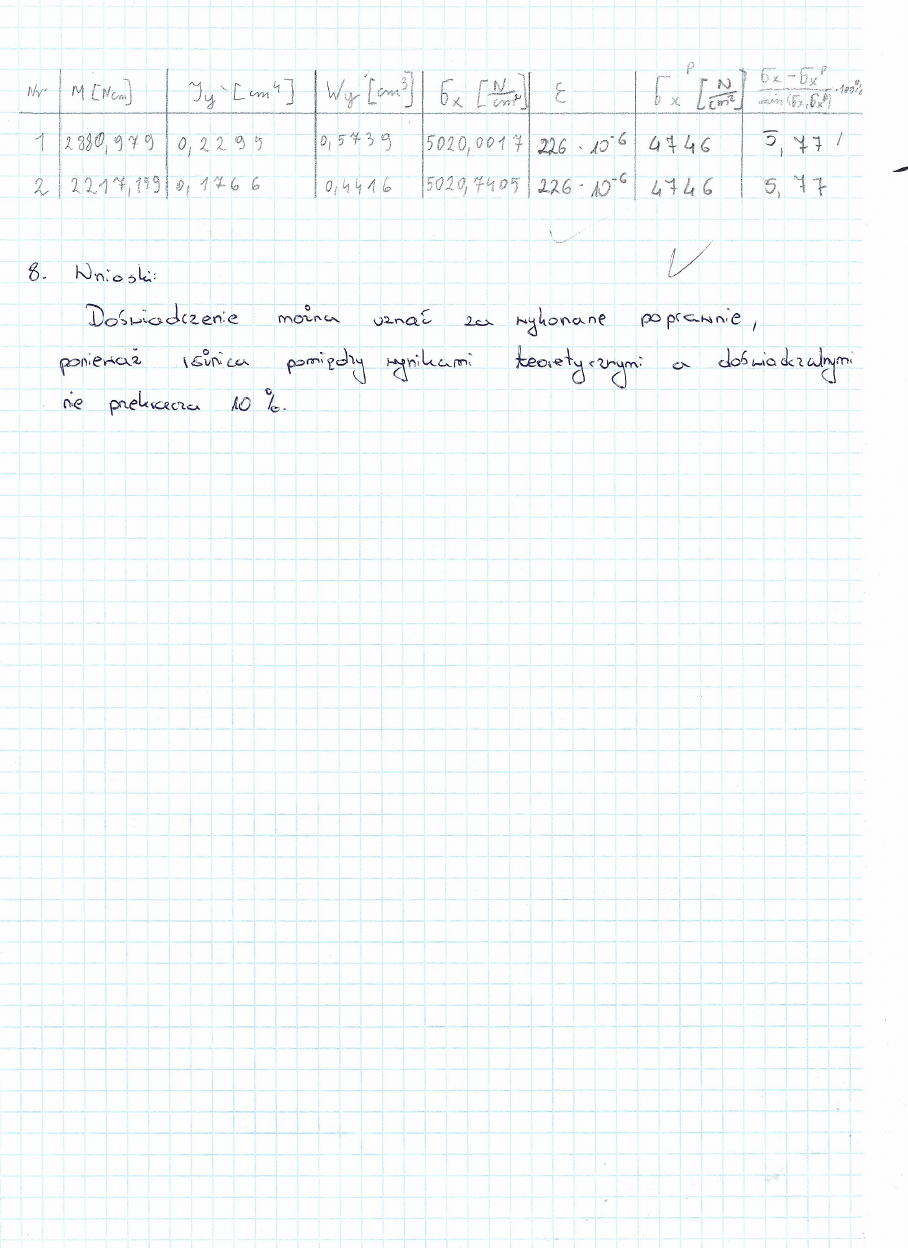 Nr M [Ncm] Jy [cm⁴] Wy [cm³] σx [N/cm²] ε σx^p [N/cm²] (σx - σx^p)/min(σx, σx^p) · 100%
1 2880,979 0,2295 0,5739 5020,0017 226 · 10⁻⁶ 4746 5,77
2 2217,159 0,1766 0,4416 5020,7405 226 · 10⁻⁶ 4746 5,77
8. Wnioski:
Doświadczenie można uznać za wykonane poprawnie,
ponieważ różnica pomiędzy wynikami teoretycznymi a doświadczalnymi
nie przekracza 10 %.